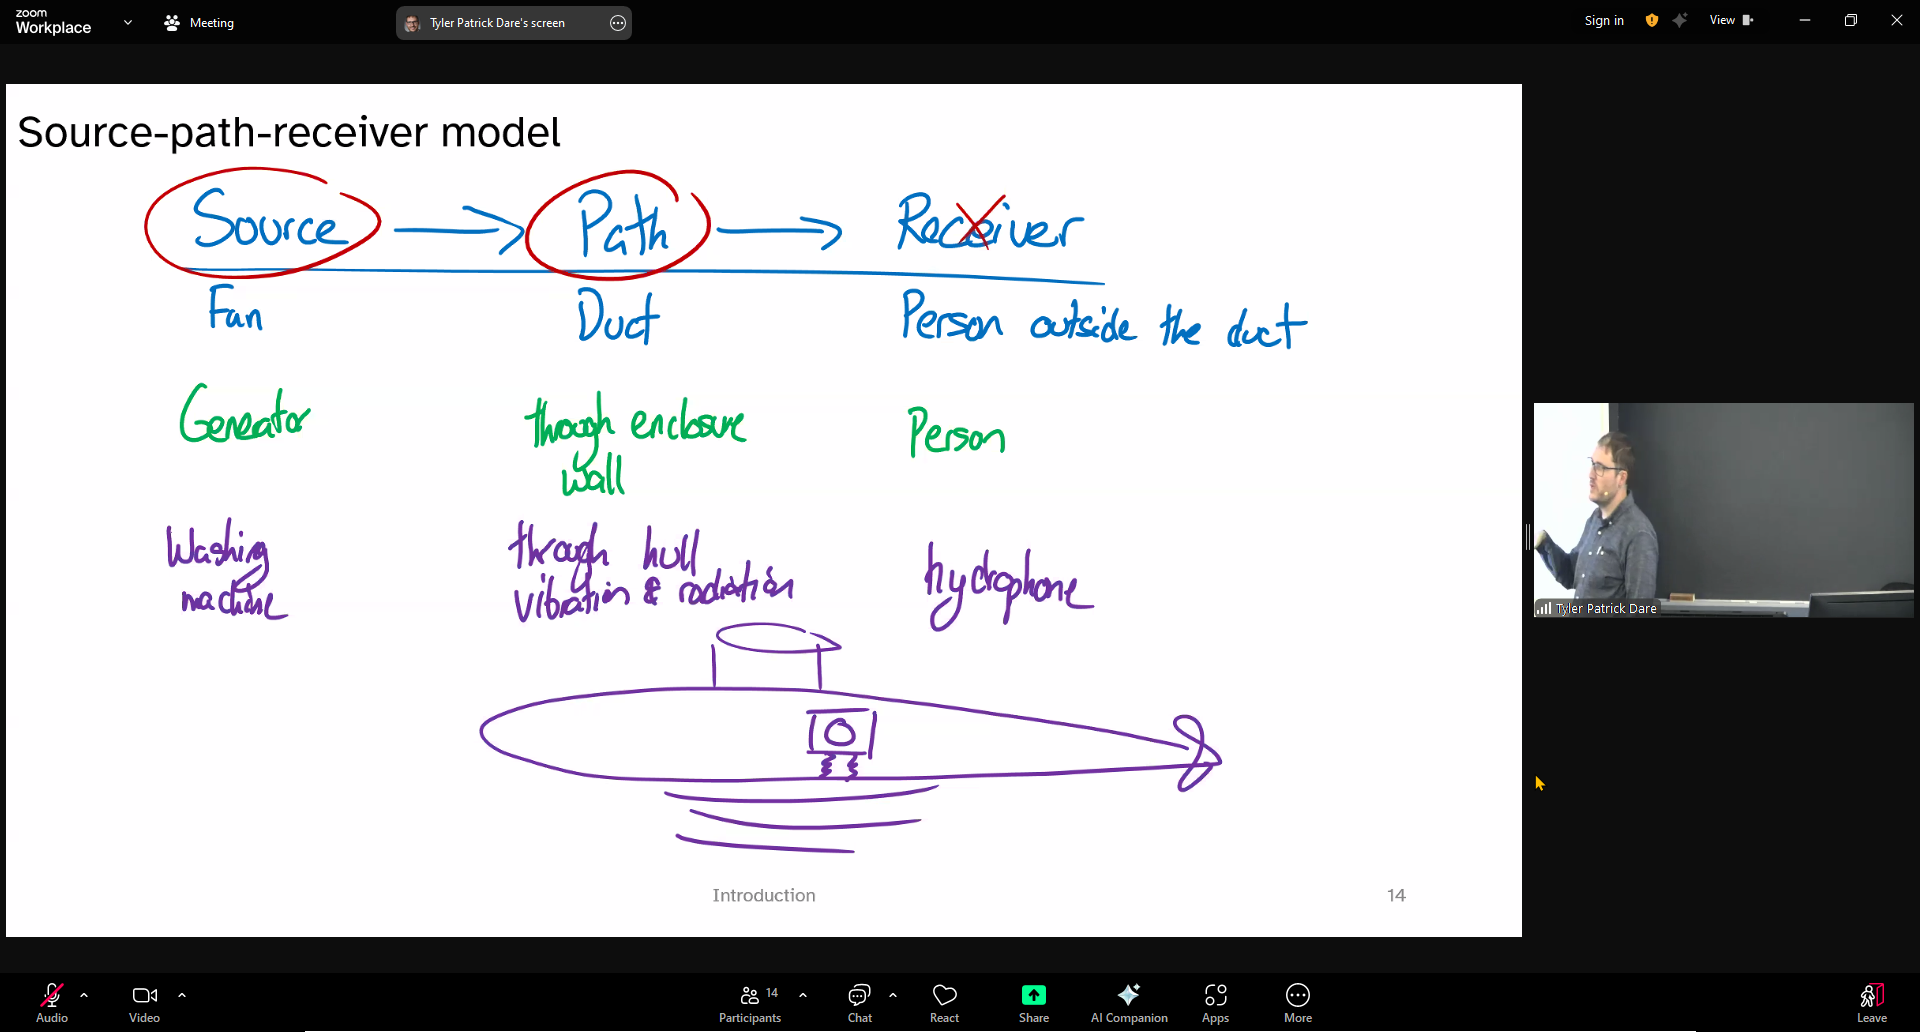 zoom
Workplace
Meeting
Tyler Patrick Dare's screen
Sign in
View
Source-path-receiver model
Source → Path → Receiver
Fan Duct Person outside the duct
Generator through enclosure Person
wall
Washing through hull
machine vibration & radiation hydrophone
Introduction 14
Tyler Patrick Dare
Audio Video Participants 14 Chat React Share AI Companion Apps More Leave